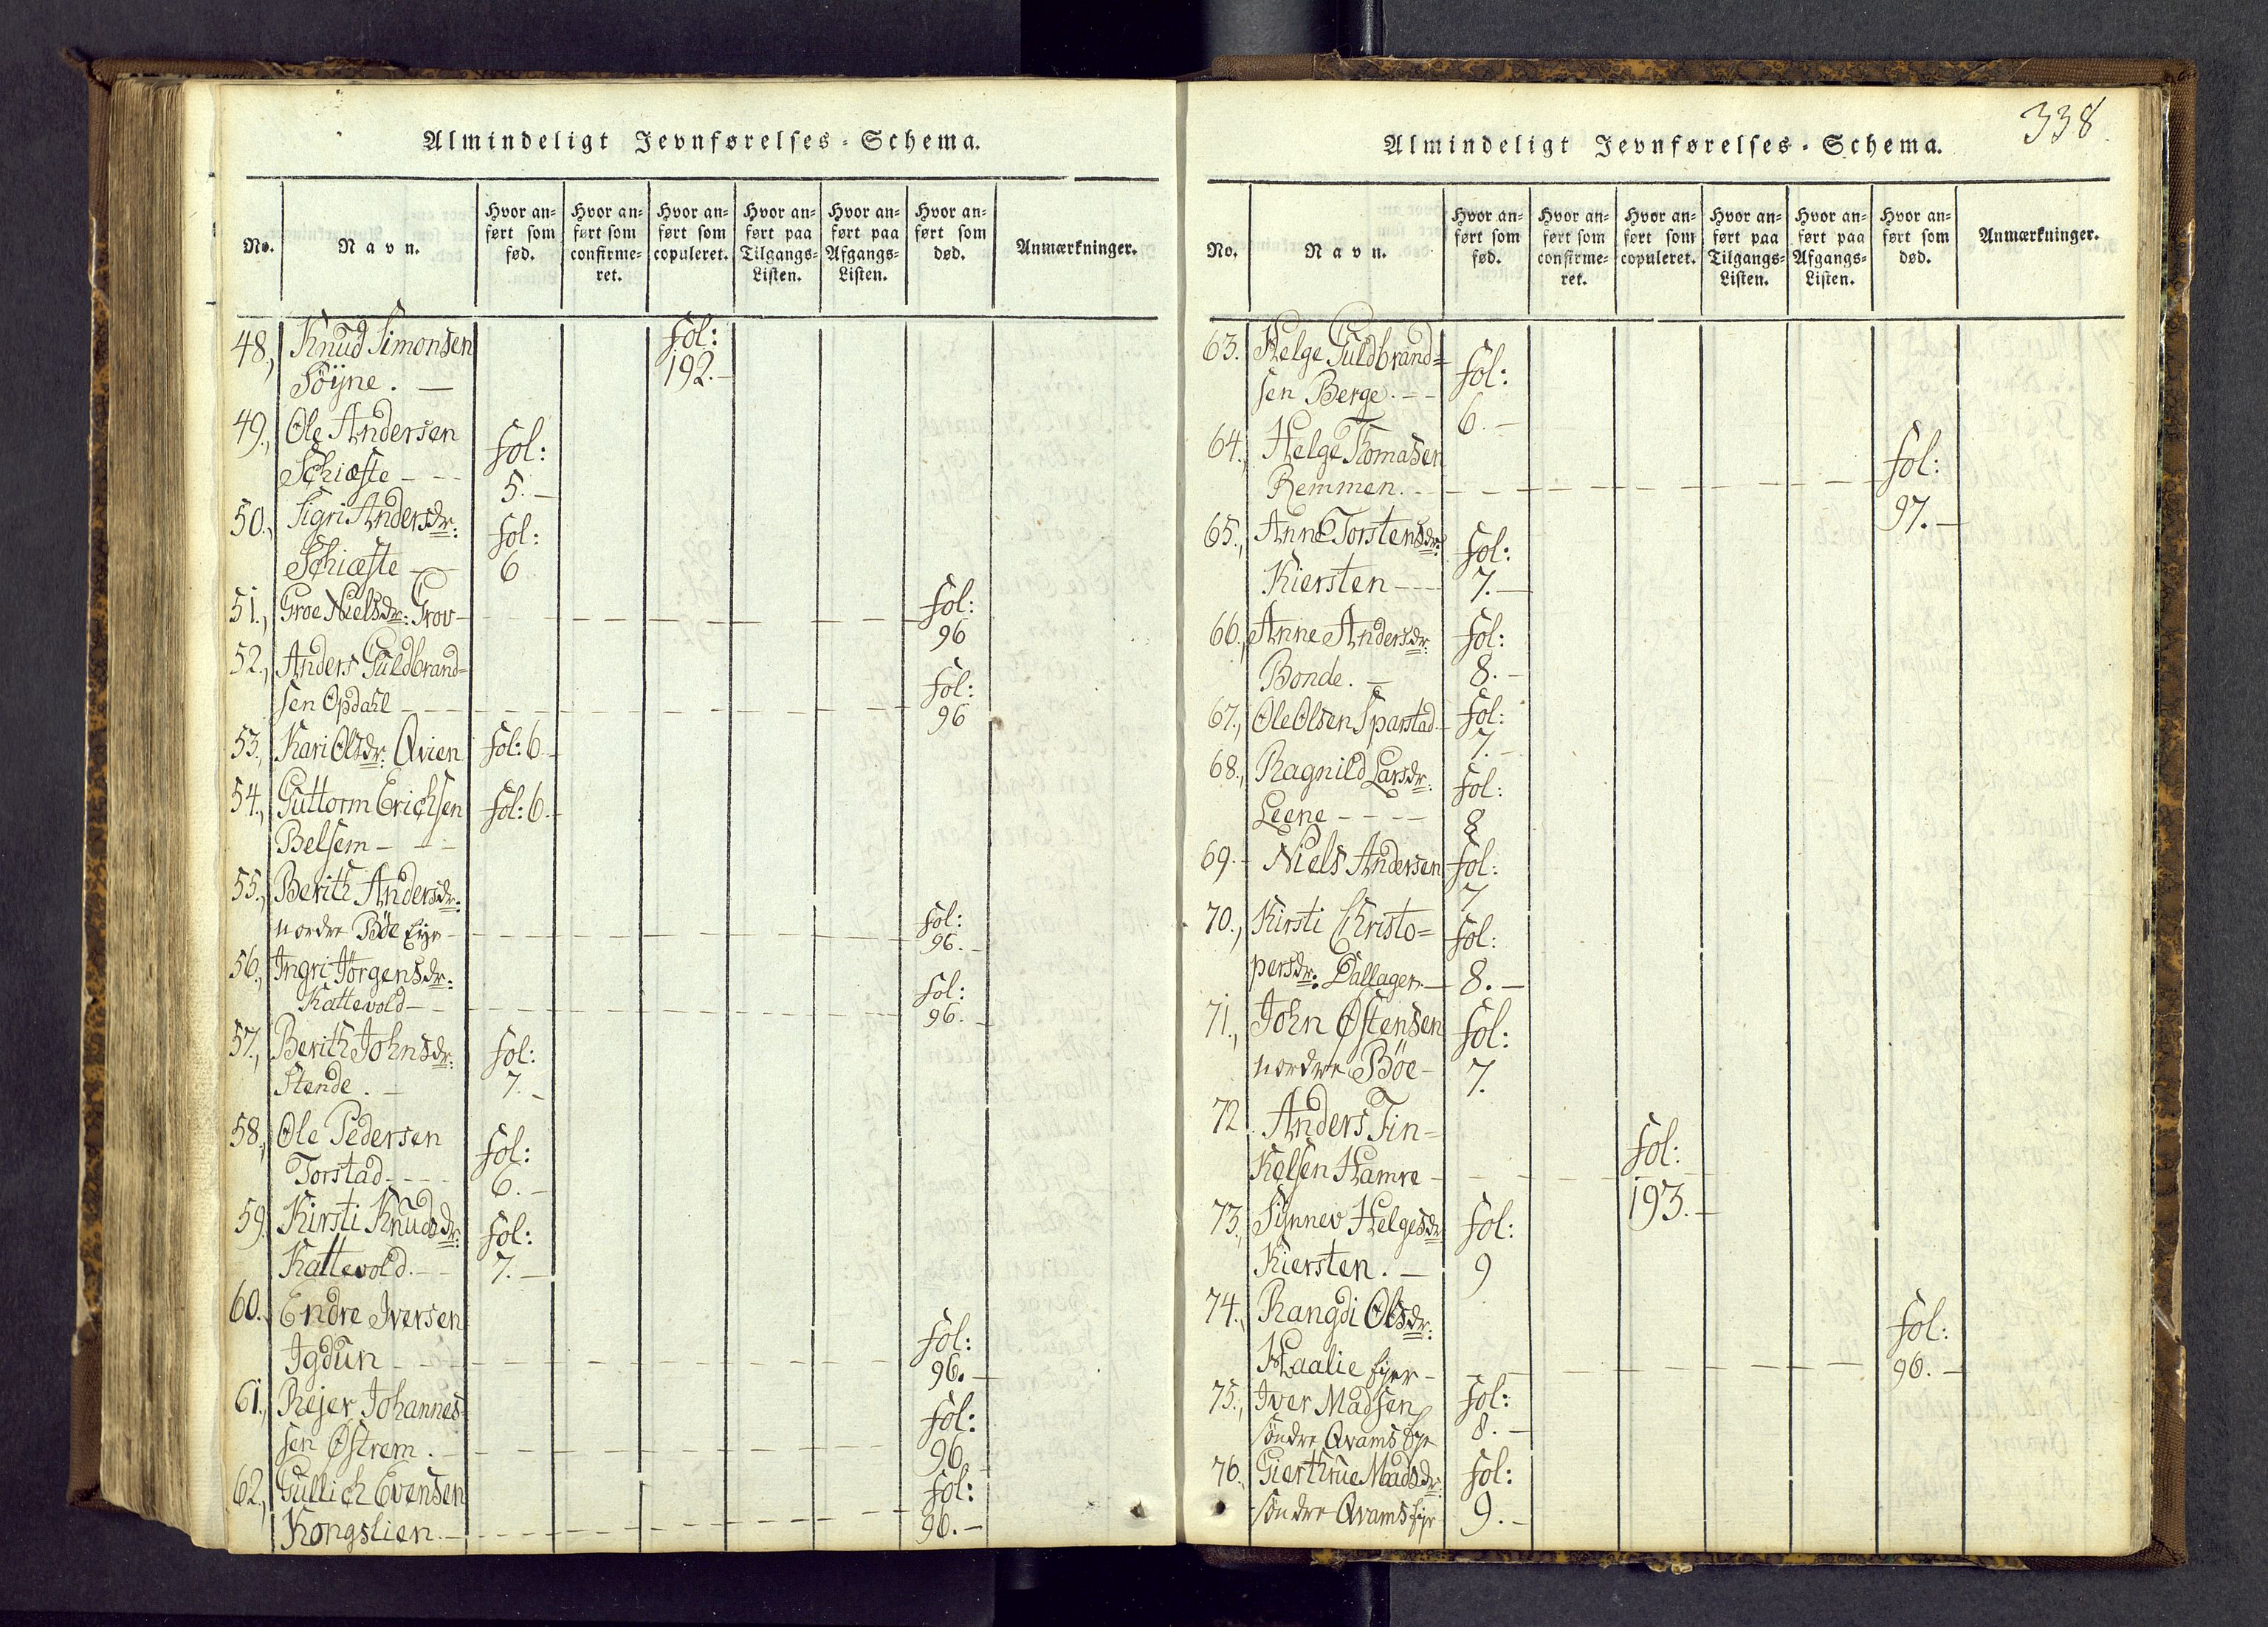 Almindeligt Jevnførelses-Schema.
No. Navn. Hvor anført som fød. Hvor anført som confirmeret. Hvor anført som copuleret. Hvor anført paa Tilgangs-Listen. Hvor anført paa Afgangs-Listen. Hvor anført som død. Anmærkninger.
48., Knud Simonsen fol:
Söÿne. — 192.—
49., Ole Andersen fol:
Schiæste — 5.—
50., Sigri Andersdr: fol:
Schiæste — 6
51., Groe Nielsdr: Grov— fol:
96
52., Anders Guldbrand= fol:
sen Opdahl — 96
53., Kari Olsdr: Qvien fol: 6.—
54., Guttorm Erichsen fol: 6.—
Belsem —
55., Berith Andersdr: fol:
nordre Böe Eÿe — 96.—
56., Ingri Jörgensdr: fol:
Kattevold — 96.—
57., Berith Johnsdr: fol:
Stende. — 7.—
58., Ole Pedersen fol:
Torstad — 6.—
59. Kirsti Knudsdr: fol:
Kattevold. — 7.—
60. Endre Iversen fol:
Igdun — 96.—
61., Rejer Johannes= fol:
sen Østrem. — 96
62., Gullich Evensen fol:
Kongslien. — 96.—
338
Almindeligt Jevnførelses-Schema.
No. Navn. Hvor anført som fød. Hvor anført som confirmeret. Hvor anført som copuleret. Hvor anført paa Tilgangs-Listen. Hvor anført paa Afgangs-Listen. Hvor anført som død. Anmærkninger.
63. Helge Guldbrand= fol:
sen Berge. — 6.—
64., Helge Thomasen fol:
Remmen. — 97.—
65., Anne Torstensdr: fol:
Kiersten — 7.—
66., Anne Andersdr: fol:
Bonde. — 8.—
67., Ole Olsen Sparstad— fol:
7.—
68., Ragnild Larsdr: fol:
Leene — 8
69.— Niels Andersen fol:
7
70., Kirsti Christo= fol:
persdr: — 8.—
71., John Østensen fol:
nordre Böe — 7.
72. Anders Fin= fol:
Kelsen Hamre — 193.—
73., Synnev Helgesdr: fol:
Kiersten. — 9
74., Rangdi Olsdr: fol:
Haalie Eÿer — 96.—
75., Iver Madsen fol:
söndre Qvams Eÿe 8.—
76., Gierthrue Madsdr: fol:
söndre Qvams Eÿe 9.—